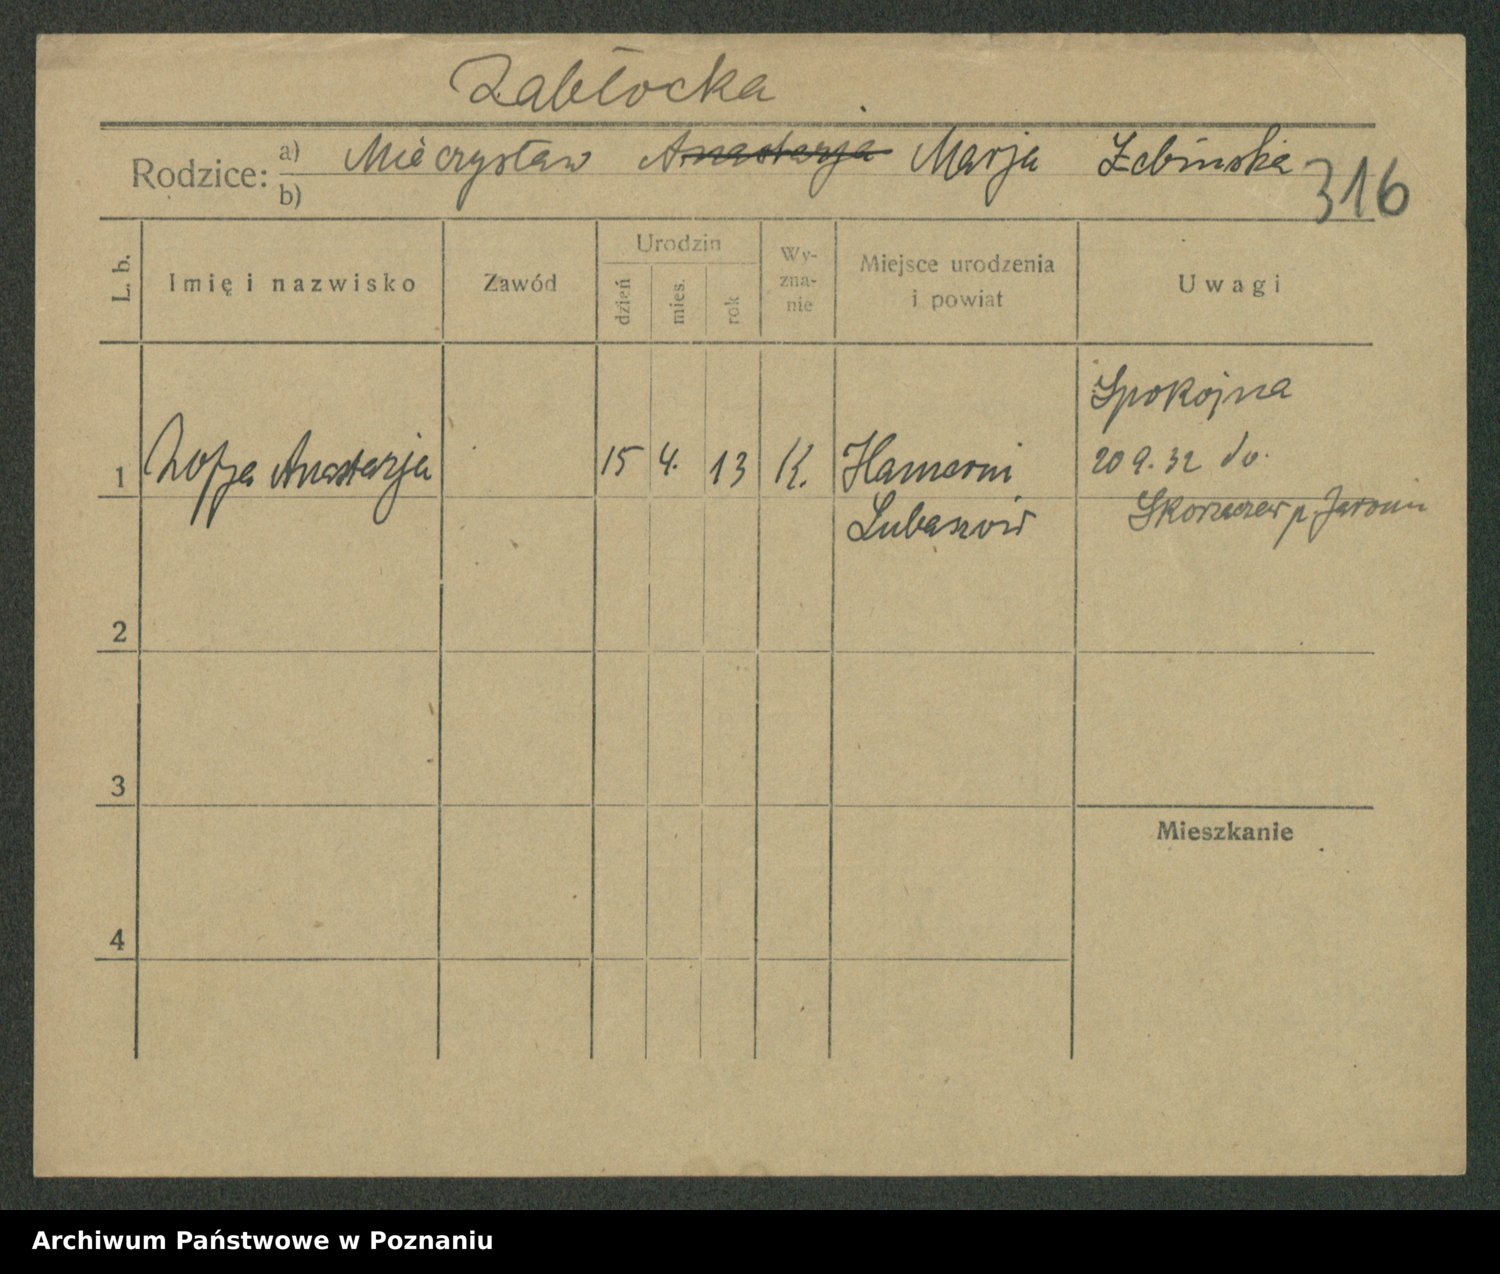 Zabłocka
Rodzice: a) b) Mieczysław Anastazja Marja Żebińska
316
L. b.
Imię i nazwisko
Zawód
Urodzin
dzień
mies.
rok
Wy-
zna-
nie
Miejsce urodzenia
i powiat
Uwagi
Spokojna
1 Zofja Anastazja 15 4. 13 K. Hamerni 20 9. 32 do
Skoraczew p. Jarocin
2
3
Mieszkanie
4
Archiwum Państwowe w Poznaniu